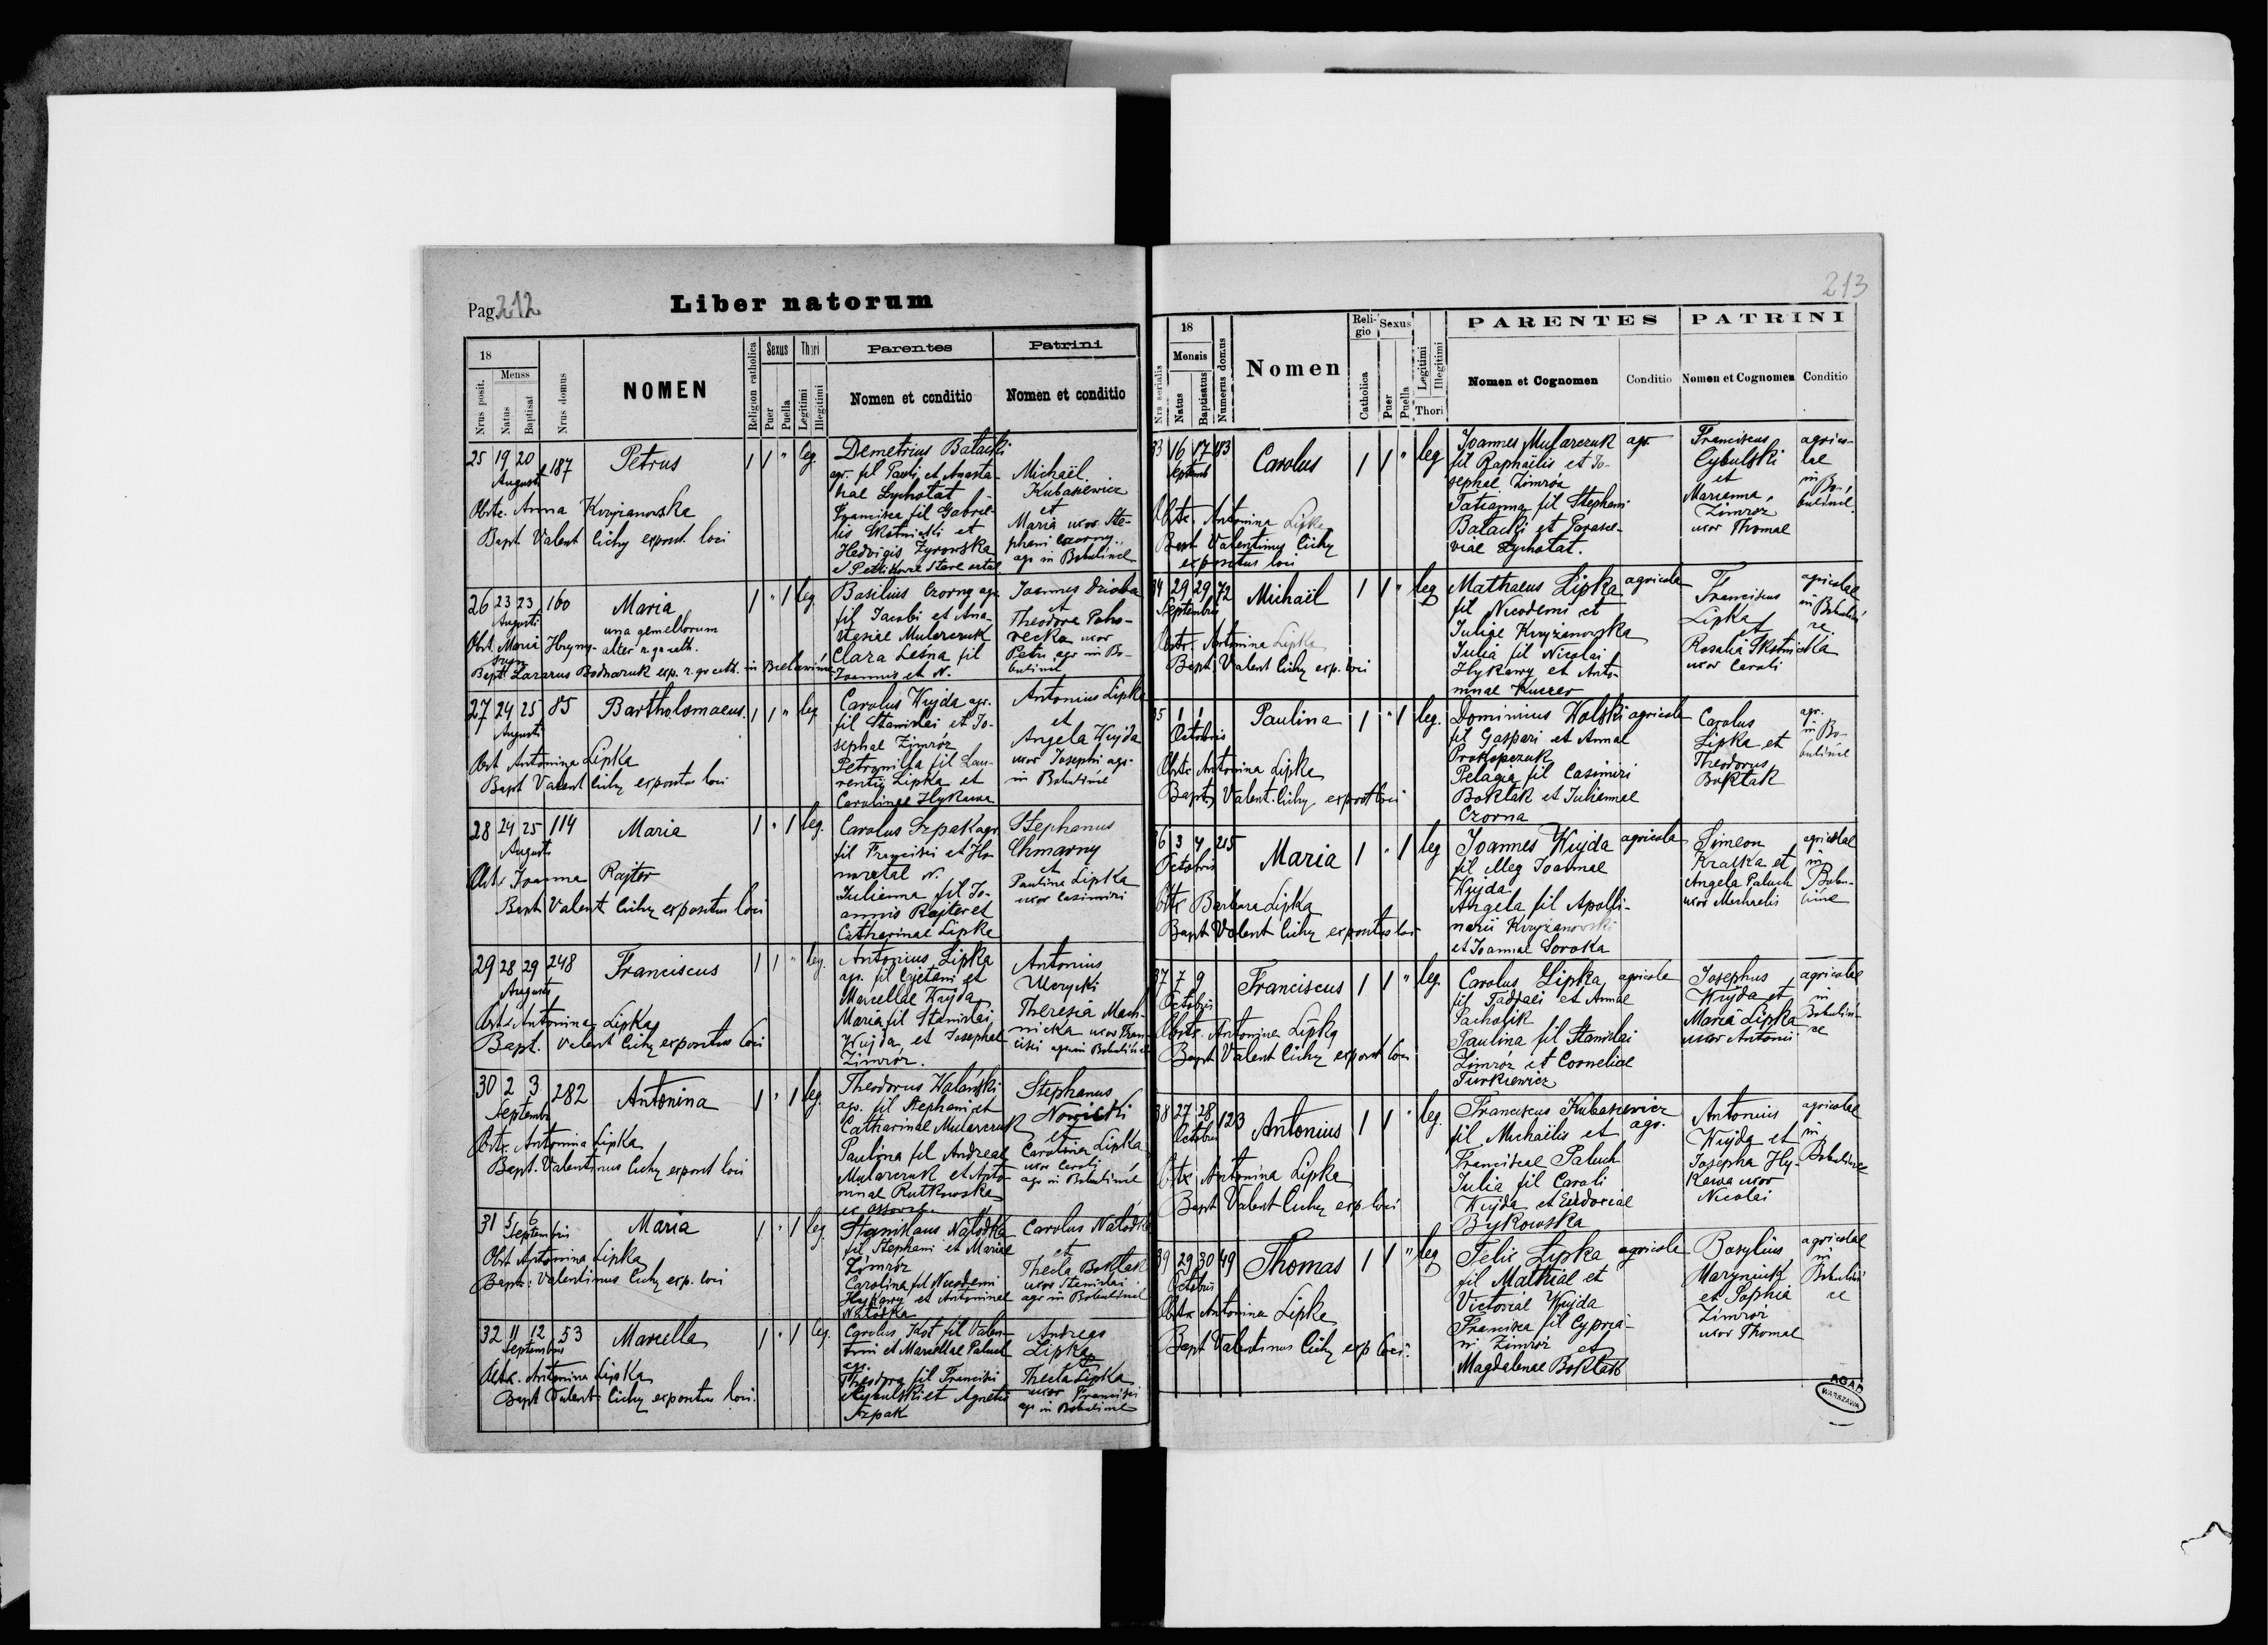 Pag. 212
Liber natorum
18
Menss
Nrus posit.
Natus
Baptisat
Nrus domus
NOMEN
Religion catholica
Sexus
Puer
Puella
Thori
Legitimi
Illegitimi
Parentes
Nomen et conditio
Patrini
Nomen et conditio
25 19 20 187 Petrus 1 1 " leg.
Augusti
Obstr. Anna Krzyżanowska
Bapt Valent Cichy exposit loci
Demetrius Batacki
agr. fil Pauli et Anasta-
siae Lychotat
Francisca fil Gabrie-
lis Skotnicki et
Hedvigis Zyrowska
e Petlikowce Stare
Michaël
Kubasiewicz
et
Maria uxor Ste-
phani Czorny
agr in Bobulince
26 23 23 160 Maria 1 " 1 leg.
Augusti
una gemellorum
alter r. gr cath.
Obst. Maria Hryny-
Bapt. Lazarus Bodnaruk exp. r. gr cath. in Bielawińce
Basilius Czorny agr.
fil Jacobi et Ana-
stasiae Mularczuk
Clara Leśna fil
Joannis et N.
Joannes Dzioba
et
Theodora Paho-
recka uxor
Petri agr in Bo-
bulince
27 24 25 85 Bartholomaeus 1 1 " leg
Augusti
Obst Antonina Lipka
Bapt Valent Cichy expositus loci
Carolus Wujda agr.
fil Stanislai et Jo-
sephae Zimróz
Petronilla fil Lau-
rentij Lipka et
Carolinae Hykawa
Antonius Lipka
et
Angela Wujda
uxor Josephi agr.
in Bobulince
28 24 25 114 Maria 1 " 1 leg.
Augusti
Obst. Joanna Rajter
Bapt Valent Cichy expositus loci
Carolus Szpak agr
fil Francisci et Ho-
noratae N.
Julianna fil Jo-
annis Rajter et
Catharinae Lipka
Stephanus
Chmarny
et
Paulina Lipka
uxor Casimiri
29 28 29 248 Franciscus 1 1 " leg.
Augusti
Obst Antonina Lipka
Bapt. Valent Cichy expositus loci
Antonius Lipka
agr. fil Cajetani et
Marcellae Wujda
Maria fil Stanislai
Wujda et Josephae
Zimróz.
Antonius
Uhrycki
Theresia Mach-
nicka uxor Fran-
cisci agr in Bobulince
30 2 3 282 Antonina 1 " 1 leg.
Septembr
Obstr. Antonina Lipka
Bapt. Valentinus Cichy exposit loci
Theodorus Walański
agr. fil Stephani et
Catharinae Mularczuk
Paulina fil Andreae
Mularczuk et Anto-
ninae Rutkowska
Stephanus
Nowicki
et
Carolina Lipka
uxor Caroli
agr in Bobulince
31 5 6 Maria 1 " 1 leg.
Septembris
Obst Antonina Lipka
Bapt: Valentinus Cichy exp. loci
Stanislaus Natodka
fil Stephani et Mariae
Zimróz
Carolina fil Nicodemi
Hykawy et Antoninae
Natodka
Carolus Natodka
et
Thecla Boktak
uxor Stanislai
agr in Bobulince
32 11 12 53 Marcella 1 " 1 leg.
Septembris
Obstr. Antonina Lipka
Bapt Valent Cichy expositus loci.
Carolus Kot fil Valen-
tini et Marcellae Paluch
agr.
Theodora fil Francisci
Cybulski et Agnetis
Szpak
Andreas
Lipka
et
Thecla Lipka
uxor Francisci
agr in Bobulince
213
Nrs serialis
18
Mensis
Natus
Baptisatus
Numerus domus
Nomen
Religio
Catholica
Sexus
Puer
Puella
Legitimi
Illegitimi
Thori
PARENTES
Nomen et Cognomen
Conditio
PATRINI
Nomen et Cognomen
Conditio
33 16 17 183 Carolus 1 1 " leg
Septemb
Obstr. Antonina Lipka
Bapt Valentinus Cichy
expositus loci
Joannes Mularczuk agr
fil Raphaëlis et Jo-
sephae Zimróz
Tatianna fil Stephani
Batacki et Parasce-
viae Lychotat.
Franciscus
Cybulski
et
Marianna
Zimroz
uxor Thomae
agrico-
lae
in Bo-
bulince
34 29 29 72 Michaël 1 1 " leg
Septembris
Obstr. Antonina Lipka
Bapt. Valent Cichy exp. loci
Mathaeus Lipka agricola
fil Nicodemi et
Juliae Krzyżanowska
Julia fil Nicolai
Hykawy et Anto-
ninae Kuszer
Franciscus
Lipka
et
Rosalia Skotnicka
uxor Caroli
agricolae
in Bobulin-
ce
35 1 1 Paulina 1 " 1 leg.
Octobris
Obstr Antonina Lipka
Bapt. Valent. Cichy exposit loci
Dominicus Wolski agricola
fil Gaspari et Annae
Prokopczuk
Pelagia fil Casimiri
Boktak et Juliannae
Czorna
Carolus
Lipka et
Theodorus
Boktak
agr.
in Bo-
bulince
36 3 4 215 Maria 1 " 1 leg
Octobris
Obstr Barbara Lipka
Bapt Valent Cichy expositus loci
Joannes Wujda agricola
fil illeg Joannae
Wujda
Angela fil Apolli-
narii Krzyżanowski
et Joannae Soroka
Simeon
Kratka et
Angela Paluch
uxor Michaelis
agricolae
in
Bobu-
lince
37 7 9 Franciscus 1 1 " leg.
Octobris
Obstr. Antonina Lipka
Bapt Valent Cichy exposit loci
Carolus Lipka agricola
fil Tadaei et Annae
Pacholik
Paulina fil Stanislai
Zimróz et Corneliae
Turkiewicz
Josephus
Wujda et
Maria Lipka
uxor Antonii
agricolae
in
Bobulin-
ce
38 27 28 123 Antonius 1 1 " leg.
Octobris
Obstr Antonina Lipka
Bapt Valent Cichy exp loci
Franciscus Kubasiewicz
fil Michaëlis et agr.
Franciscae Paluch
Julia fil Caroli
Wujda et Eudoxiae
Bykowska
Antonius
Wujda et
Josepha Hy-
kawa uxor
Nicolai
agricolae
in
Bobulince
39 29 30 49 Thomas 1 1 " leg
Octobris
Obstr Antonina Lipka
Bapt Valentinus Cichy exp loci.
Felix Lipka agricola
fil Mathiae et
Victoriae Wujda
Francisca fil Cypria-
ni Zimróz et
Magdalenae Boktak
Basylius
Maryniuk
et Sophia
Zimróz
uxor Thomae
agricolae
in
Bobulin-
ce
AGAD
WARSZAWA